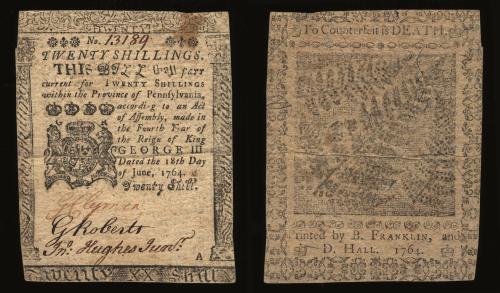 TWENTY
No. 13189
TWENTY SHILLINGS.
THIS BILL shall pass
current for TWENTY SHILLINGS
within the Province of Pennsylvania,
accordi-g to an Act
of Assembly, made in
the Fourth Year of
the Reign of King
GEORGE III
Dated the 18th Day
of June, 1764.
Twenty Shill.
G Roberts
Jno. Hughes Junr.
A
Twenty XX Shill
To Counterfeit is DEATH.
rinted by B. FRANKLIN, and
D. HALL. 1764.